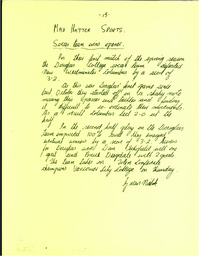 - 15 -
MAD HATTER SPORTS.
Soccer team wins opener.
In their first match of the spring season
the Douglas College soccer team defeated
New Westminster Columbus by a score of
3-2.
As this was Douglas' first game since
last October they started off on a shaky note
missing their passes and tackles and finding
it difficult to co-ordinate their movements.
As a result Columbus led 2-0 at the
half.
In the second half play on the Douglas
team improved 100% and they emerged
eventual winners by a score of 3-2.
for Douglas were Dan with one
goal and with 2 goals.
The team takes on
champions Vancouver City College on Thursday.
by